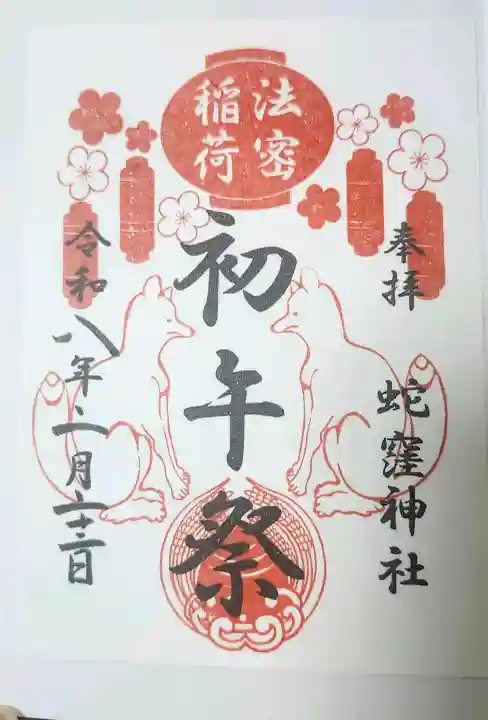 法密
稲荷
奉拝
蛇窪神社
初午祭
令和八年二月二十三日